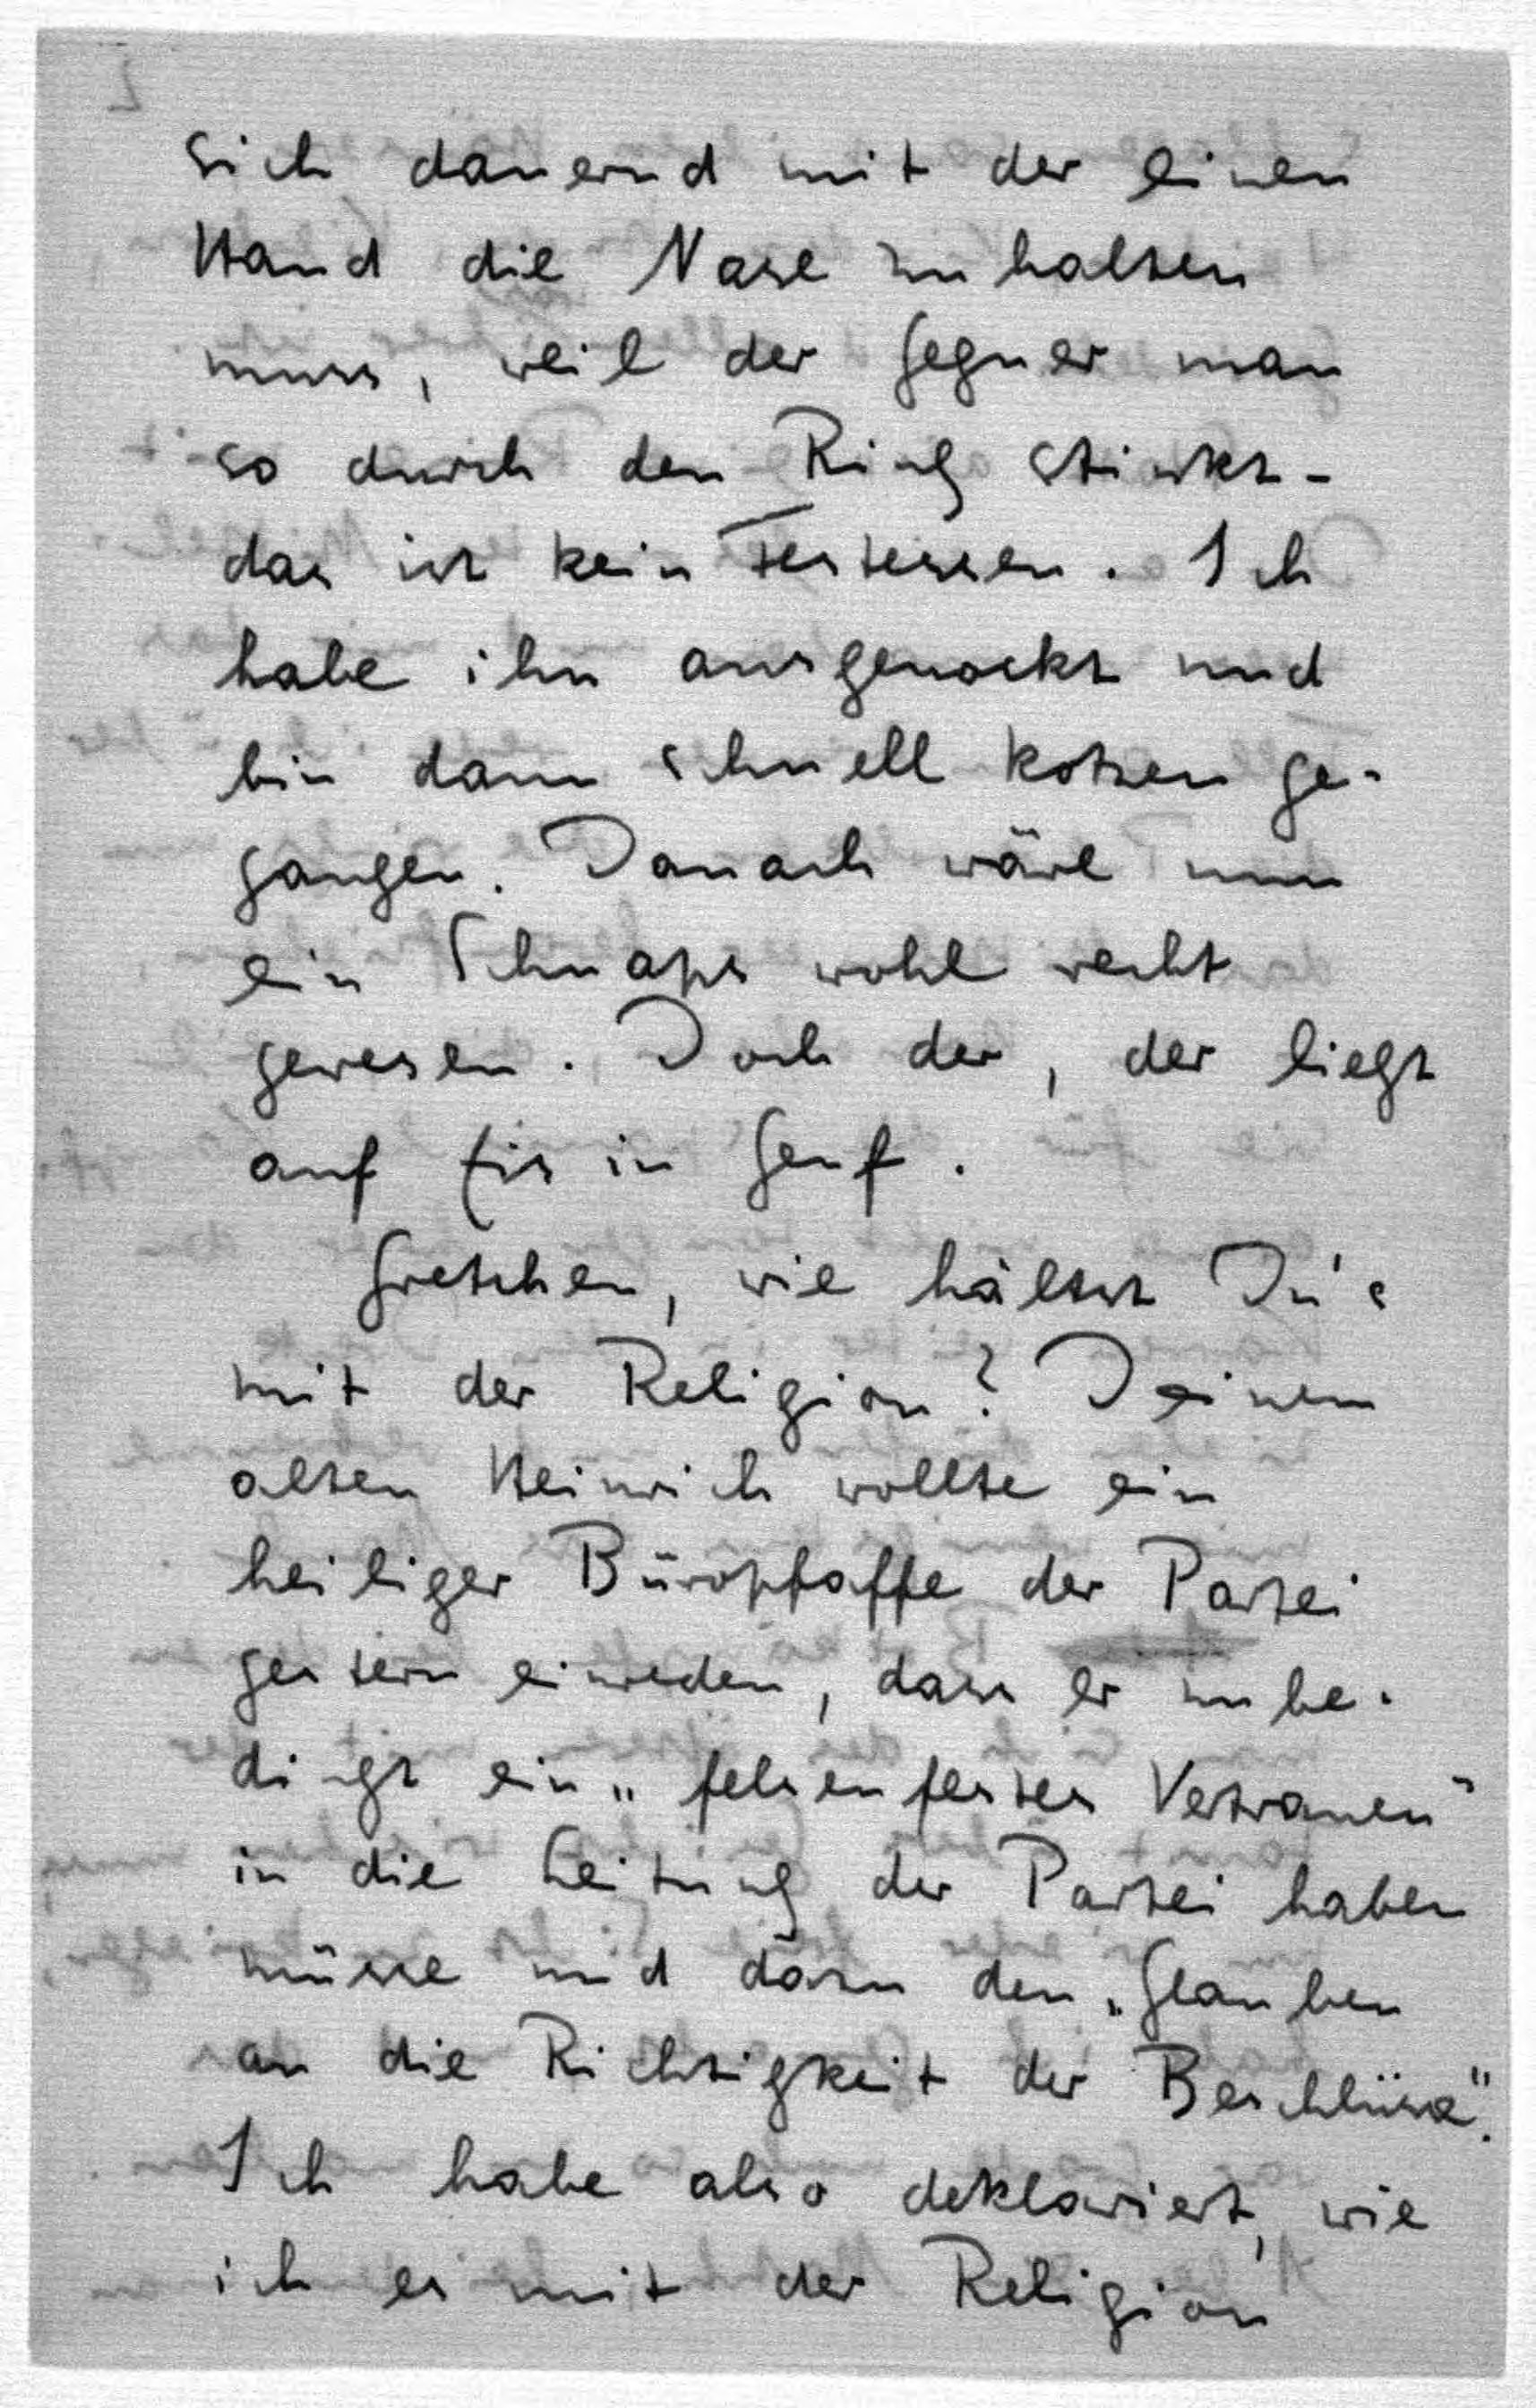 sich dauernd mit der einen
Hand die Nase zu halten
muss, weil der Gegner man
so durch den Ring stinkt -
das ist kein Festessen. Ich
habe ihn ausgenockt und
bin dann schnell kotzen ge-
gangen. Danach wäre nun
ein Schnaps wohl recht
gewesen. Doch der, der liegt
auf Eis in Genf.
Gretchen, wie hältst Du's
mit der Religion? Deinem
alten Heinrich wollte ein
heiliger Büropfaffe der Partei
gestern einreden, dass er unbe-
dingt ein „felsenfestes Vertrauen"
in die Leitung der Partei haben
müsse und dazu den „Glauben
an die Richtigkeit der Beschlüsse".
Ich habe also deklariert, wie
ich es mit der Religion